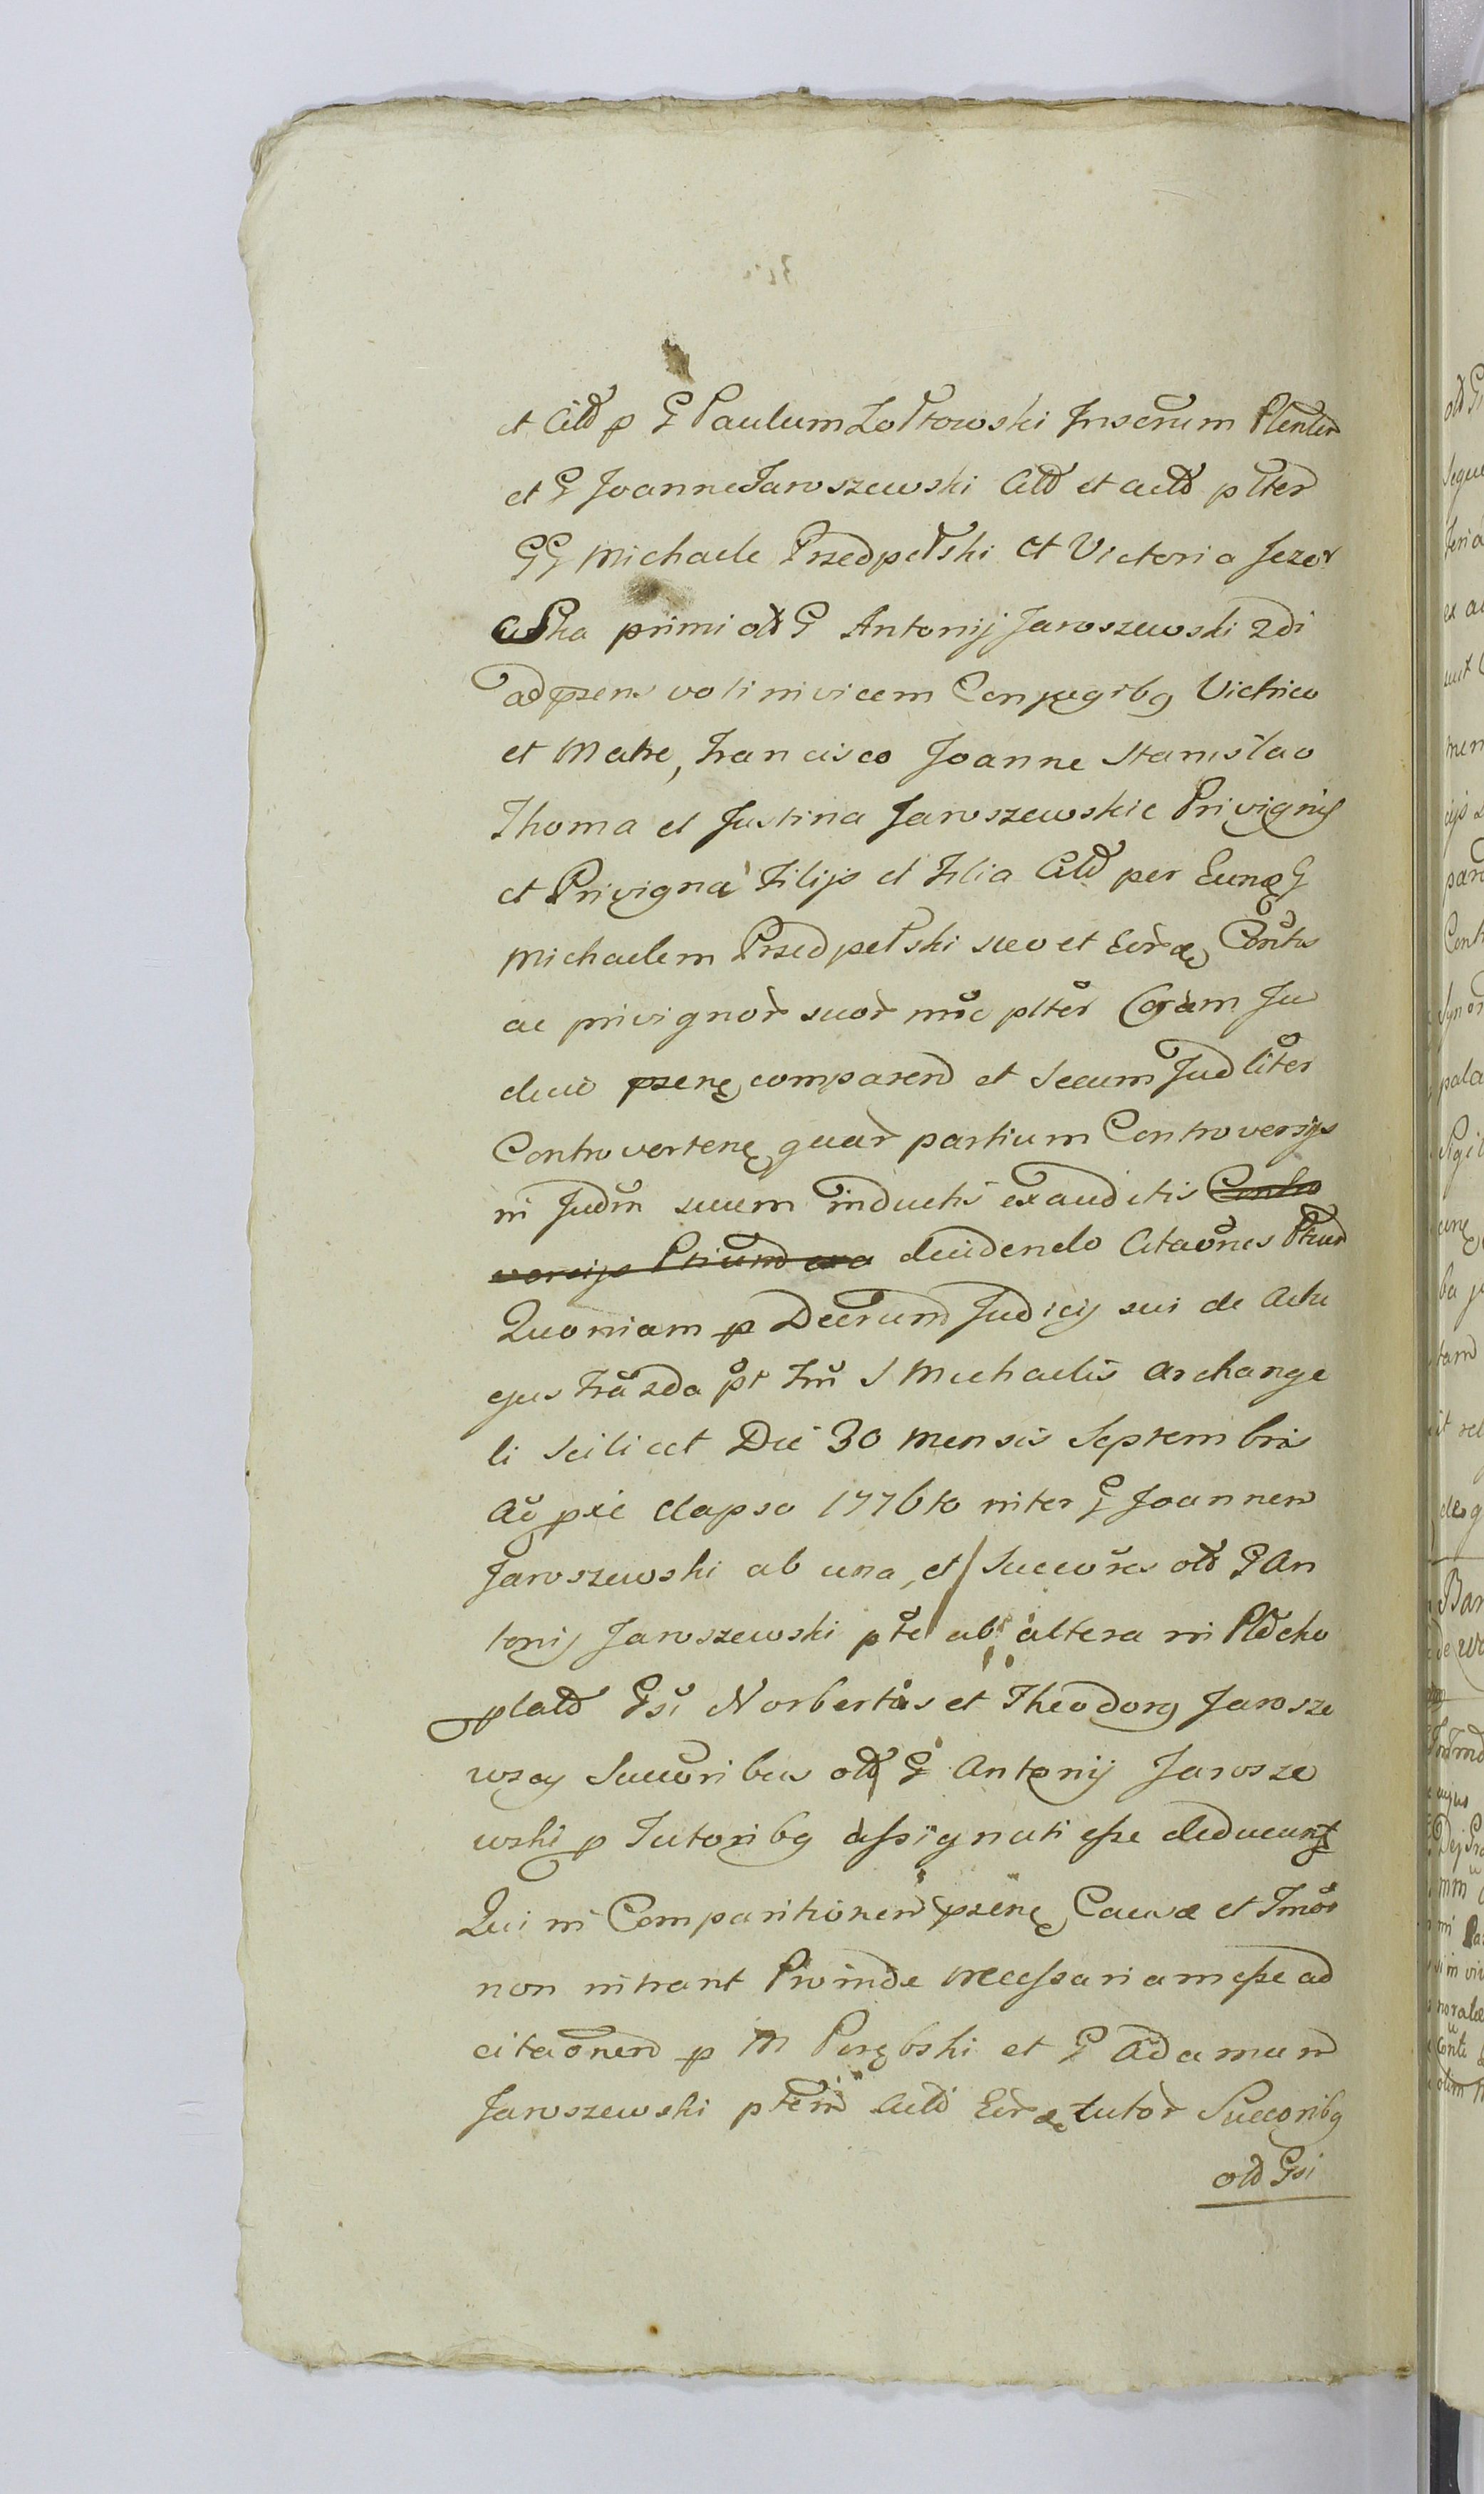 et Citt p G Paulum Zołtowski Inscrum Plenten
et G Joanne Jaroszewski Citt et actt plter
GG Michaele Przedpełski et Victoria Jezer
cSka primi ott G Antonij Jaroszewski 2di
ad prens voti invicem Conjugibg Victrico
et Matre, Francisco Joanne Stanislao
Thoma et Justina Jaroszewskie Privignis
et Privigna Filijs et Filia Citt per Eund G
Michaelem Przedpełski suo et Eor Contus
ac privignor suor noie plter Coram Ju
dicio prene comparen et secum Judliter
Controvertene quar partium Controversijs
in Judm suum inductis exauditis Contro
versijs Ptium exa decidendo Citaones Ptium
Quoniam p Decrum Judicij sui de Actu
ejus Fra 2da pt Fm S Michaelis Archange
li Scilicet Die 30 mensis Septembris
Ao pxe elapso 1776to inter G Joannem
Jaroszewski ab una, et Succores ott G An
tonij Jaroszewski pte ab altera in Plocko
platt Gsi Norbertus et Theodorg Jarosze
wscy Succoribus ott G Antonij Jarosze
wski p Tutoribg assignati esse deducunt
Qui in Comparitionem prene Causae et Tmor
non intrant Proinde necessariam esse ad
citaonem p M Porębski et G Adamum
Jaroszewski ptem actt Eor tutor Succoribg
ott Gsi